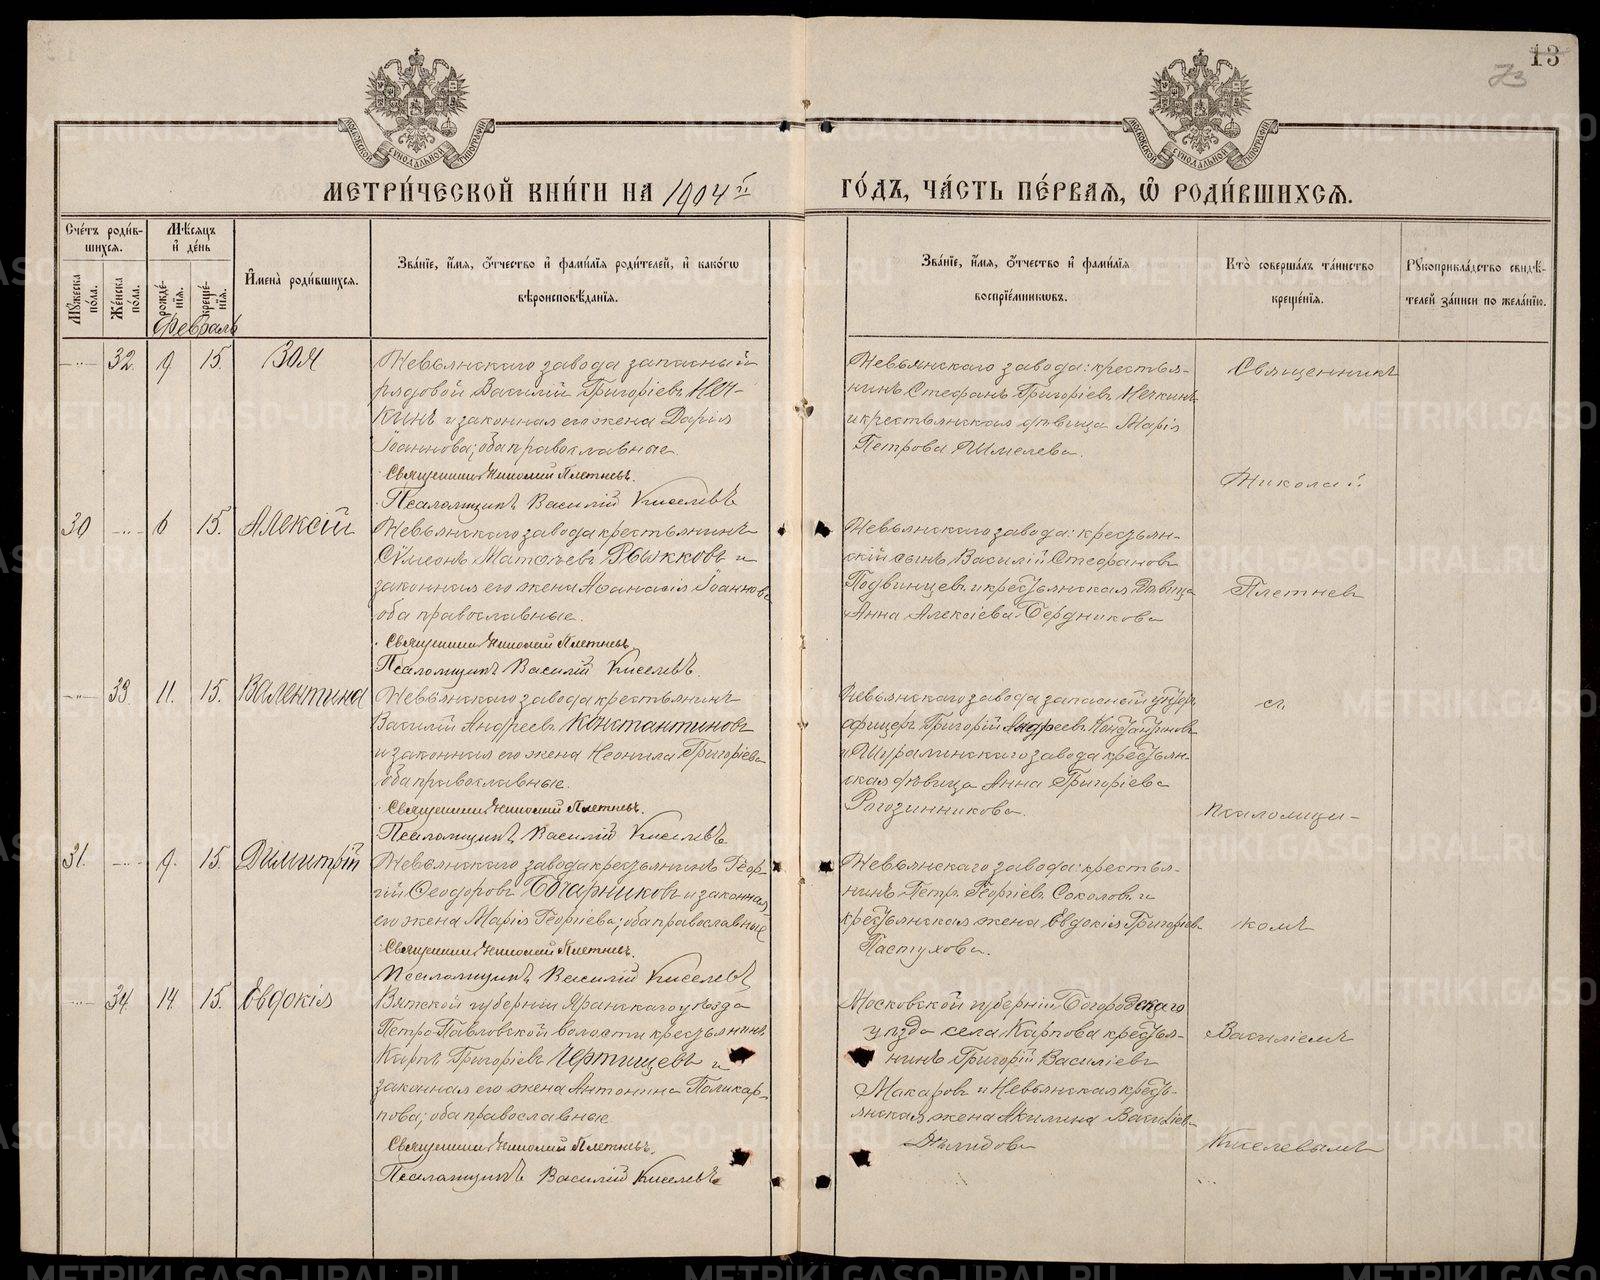 13
73
МОСКОВСКОЙ СѴНОДАЛЬНОЙ ТИПОГРАФІИ
МОСКОВСКОЙ СѴНОДАЛЬНОЙ ТИПОГРАФІИ
МЕТРИ́ЧЕСКОЙ КНИ́ГИ НА 1904 й
ГО́ДЪ, ЧА́СТЬ ПЕ́РВАЯ, Ѽ РОДИ́ВШИХСѦ.
Сче́тъ роди́в-
шихсѧ.
Мꙋжеска по́ла.
Же́нска по́ла.
Мѣ́сѧцъ
и҆ де́нь
рожде́-
нїѧ.
креще́-
нїѧ.
И҆мена̀ роди́вшихсѧ.
Зва́нїе, и҆́мѧ, ѻ҆́тчество и҆ фами́лїѧ роди́телей, и҆ како́гѡ
вѣроисповѣ́данїѧ.
Зва́нїе, и҆́мѧ, ѻ҆́тчество и҆ фами́лїѧ
воспрїе́мникѡвъ.
Кто̀ соверша́лъ та́инство
креще́нїѧ.
Рꙋкоприкла́дство свидѣ́-
телей за́писи по жела́нїю.
Февраль
32. 9 15. Зоя
Невьянскаго завода запасный
рядовой Василій Григоріевъ Неч-
кинъ и законная его жена Дарія
Іоаннова; оба православные.
Священникъ Николай Плетневъ.
Псаломщикъ Василій Киселевъ
Невьянскаго завода: крестья-
нинъ Стефанъ Григоріевъ Нечкинъ
и крестьянская дѣвица Марія
Петрова Шмелева.
Священникъ
Николай
30 6 15. Алексій
Невьянскаго завода крестьянинъ
Сѵмеонъ Матѳеевъ Рыжковъ и
законная его жена Аѳанасія Іоаннова
оба православные.
Священникъ Николай Плетневъ.
Псаломщикъ Василій Киселевъ.
Невьянскаго завода: крестьян-
скій сынъ Василій Стефановъ
Подвинцевъ и крестьянская дѣвица
Анна Алексіева Бердникова
Плетневъ
33. 11. 15. Валентина
Невьянскаго завода крестьянинъ
Василій Андреевъ Константиновъ
и законная его жена Неонила Григоріева
оба православные.
Священникъ Николай Плетневъ.
Псаломщикъ Василій Киселевъ
Невьянскаго завода запасной унтеръ
офицеръ Григорій Андреевъ Константиновъ
и Шуралинскаго завода крестьян-
ская дѣвица Анна Григоріева
Рогозинникова.
съ
псаломщи-
31. 9. 15. Димитрій
Невьянскаго завода крестьянинъ Геор-
гій Ѳеодоровъ Бочарниковъ и законная
его жена Марія Георгіева; оба православные
Священникъ Николай Плетневъ.
Псаломщикъ Василій Киселевъ
Невьянскаго завода: крестья-
нинъ Петръ Георгіевъ Соколовъ и
крестьянская жена Евдокія Григоріева
Пастухова.
комъ
34. 14. 15. Евдокія
Вятской губерніи Яранскаго уѣзда
Петро-Павловской волости крестьянинъ
Карпъ Григоріевъ Чертищевъ и
законная его жена Антонина Поликар-
пова; оба православные
Священникъ Николай Плетневъ.
Псаломщикъ Василій Киселевъ
Московской губерніи Богородскаго
уѣзда села Карпова крестья-
нинъ Григорій Василіевъ
Макаровъ и Невьянская кресть-
янская жена Акилина Василіев-
Демидова
Василіемъ
Киселевымъ